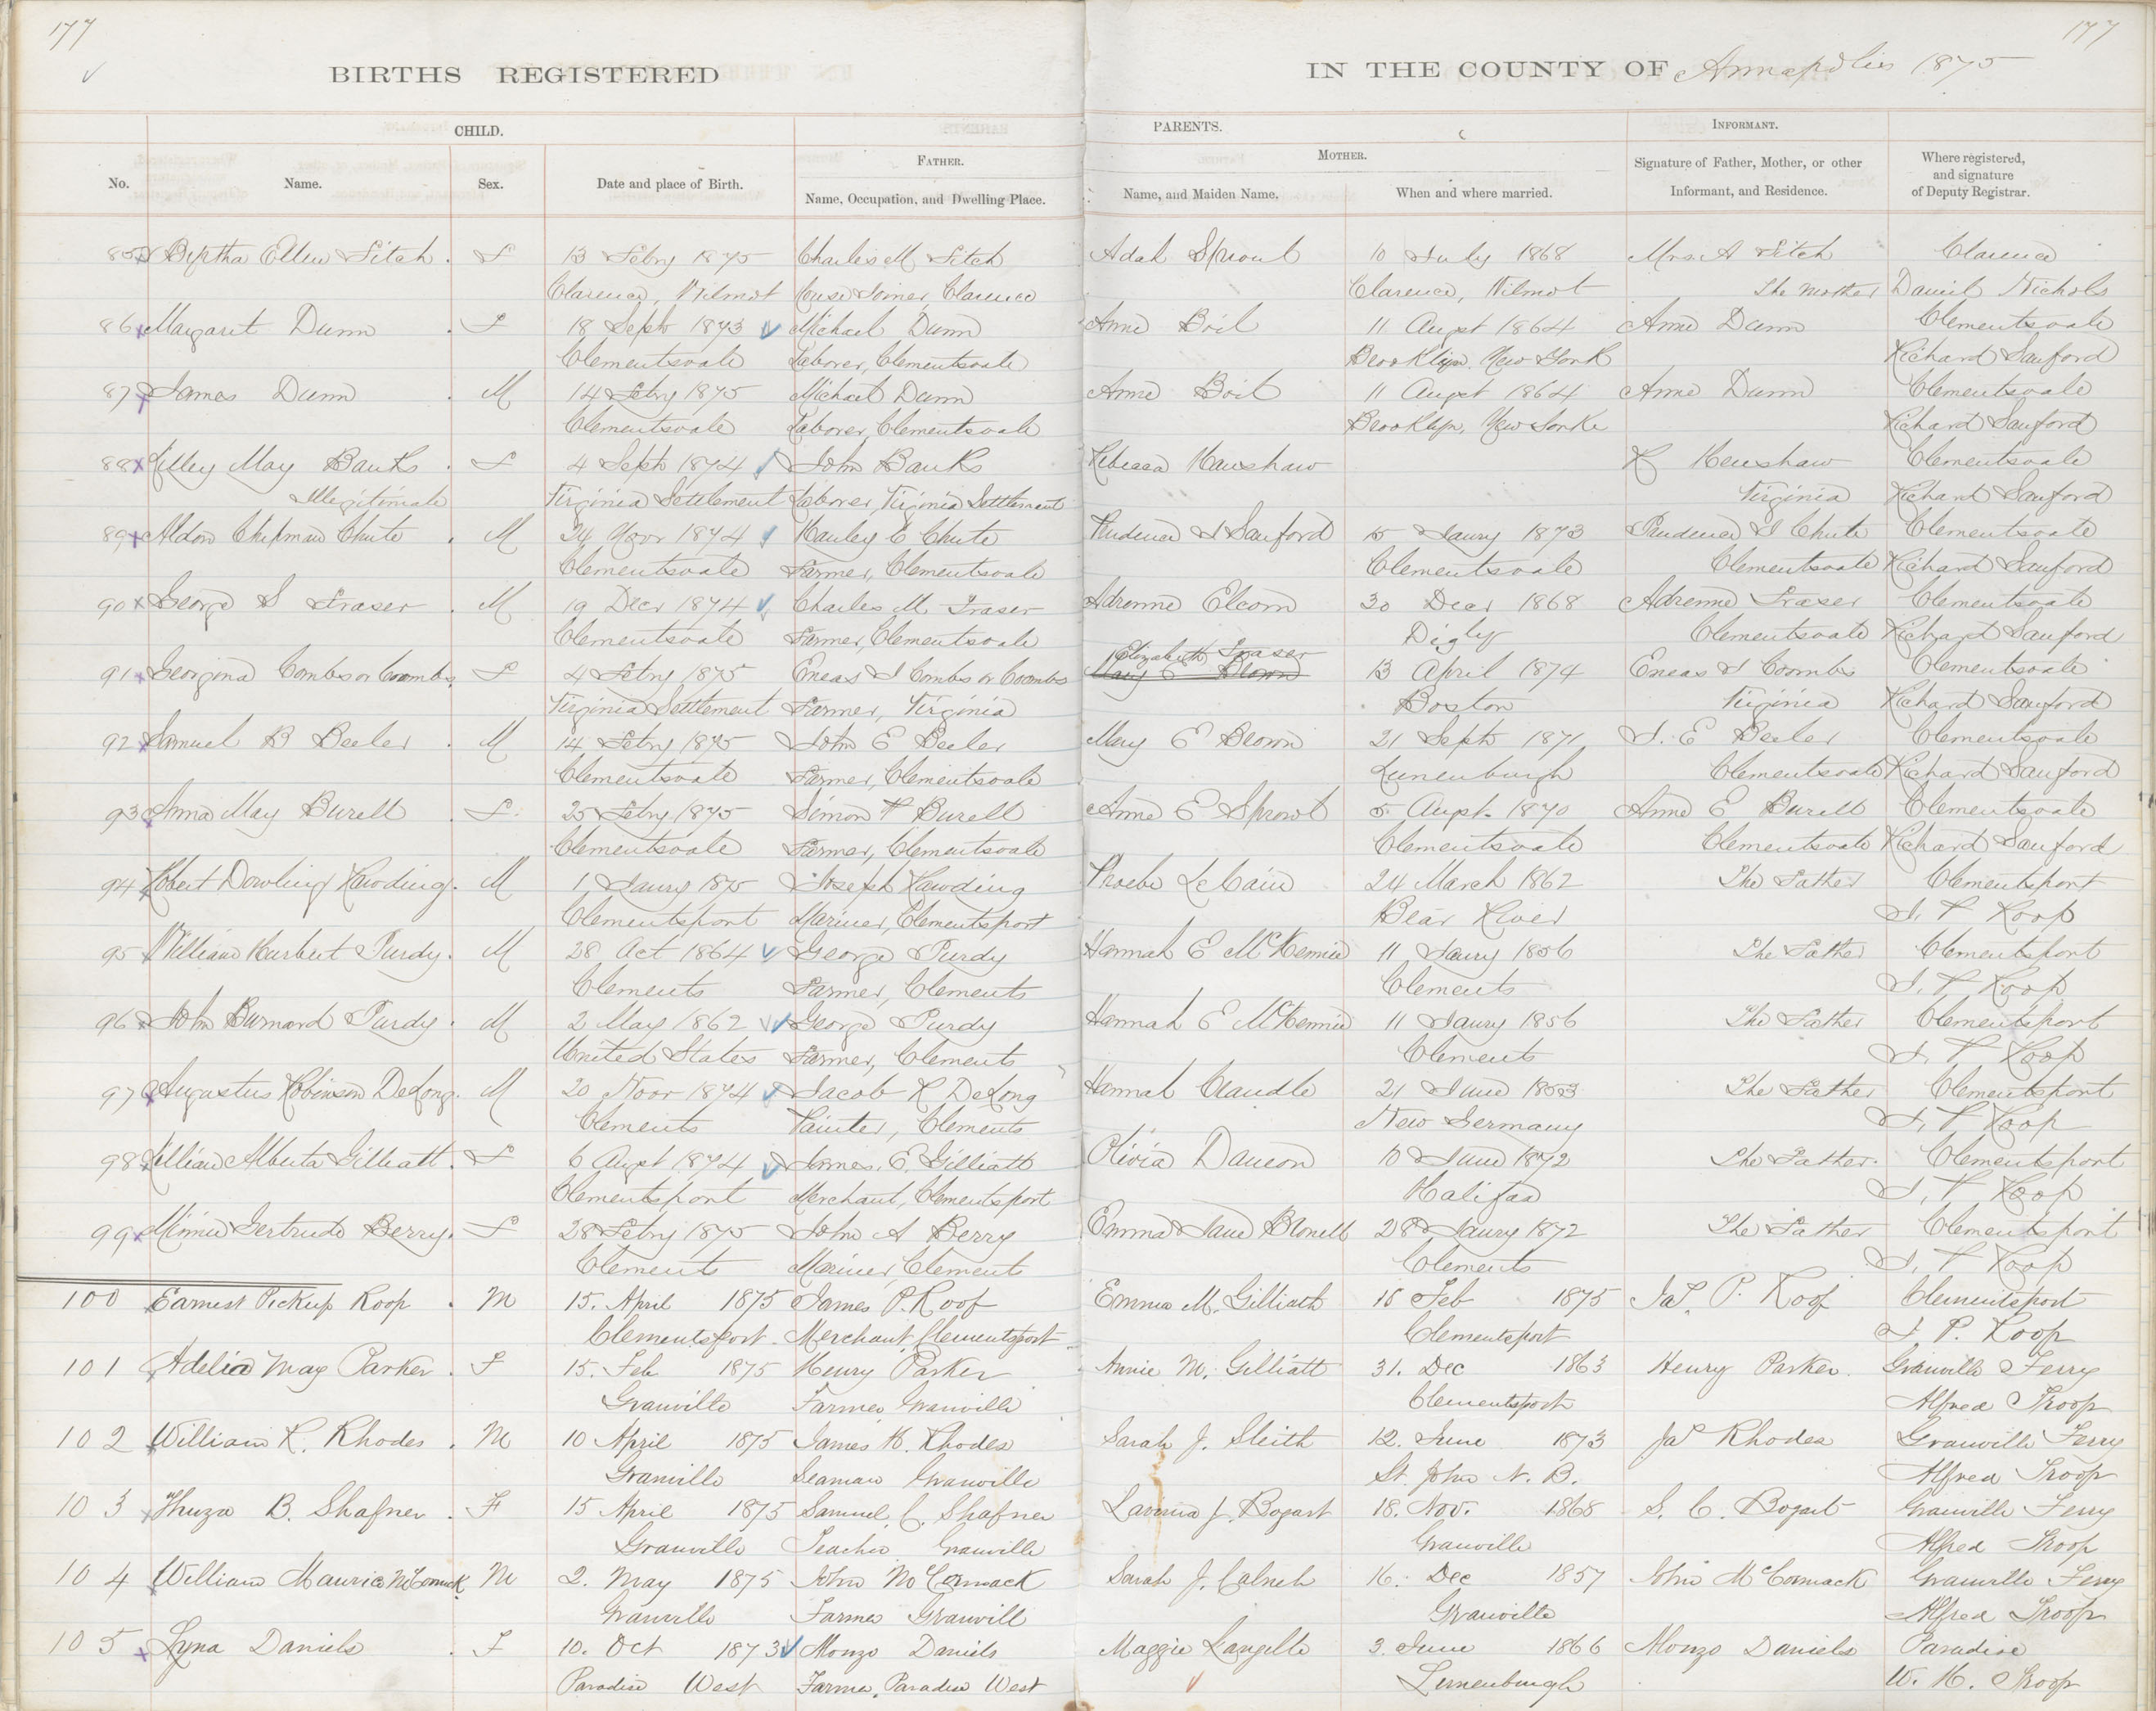 177
177
BIRTHS REGISTERED
IN THE COUNTY OF Annapolis 1875
CHILD.
PARENTS.
INFORMANT.
FATHER.
MOTHER.
No.
Name.
Sex.
Date and place of Birth.
Name, Occupation, and Dwelling Place.
Name, and Maiden Name.
When and where married.
Signature of Father, Mother, or other
Informant, and Residence.
Where registered,
and signature
of Deputy Registrar.
85 Bertha Ellen Fitch . F 13 Febry 1875 Charles M Fitch Adah Sproul 10 July 1868 Mrs. A Fitch Clarence
Clarence, Wilmot House Joiner, Clarence Clarence, Wilmot The Mother Daniel Nichols
86 Margaret Dunn . F 18 Sept 1873 Michael Dunn Anne Boil 11 Augst 1864 Anne Dunn Clementsvale
Clementsvale Laborer, Clementsvale Brooklyn, New York Richard Sanford
87 James Dunn . M 14 Febry 1875 Michael Dunn Anne Boil 11 Augst 1864 Anne Dunn Clementsvale
Clementsvale Laborer, Clementsvale Brooklyn, New Yorke Richard Sanford
88 Lilley May Banks . F 4 Sept 1874 John Banks Rebecca Hanshaw R Henshaw Clementsvale
Illegitimate Virginia Settlement Laborer, Virginia Settlement Virginia Richard Sanford
89 Aldon Chipman Chute . M 24 Novr 1874 Hanley C Chute Prudence I Sanford 15 Janry 1873 Prudence I Chute Clementsvale
Clementsvale Farmer, Clementsvale Clementsvale Clementsvale Richard Sanford
90 George S Fraser . M 19 Decr 1874 Charles M. Fraser Adrenne Elcom 30 Decr 1868 Adrenne Fraser Clementsvale
Clementsvale Farmer, Clementsvale Digby Clementsvale Richard Sanford
Elizabeth Fraser
91 Georgina Combs or Coombs F 4 Febry 1875 Eneas I Combs or Coombs Mary E Brown 13 April 1874 Eneas I Coombs Clementsvale
Virginia Settlement Farmer, Virginia Boston Virginia Richard Sanford
92 Samuel B Beeler . M 14 Febry 1875 John E Beeler Mary E Brown 21 Sept 1871 J. E Beeler Clementsvale
Clementsvale Farmer, Clementsvale Lunenburgh Clementsvale Richard Sanford
93 Anna May Burell . F. 25 Febry 1875 Simon P Burell Anne E Sprowl 5 Augst. 1870 Anne E Burell Clementsvale
Clementsvale Farmer, Clementsvale Clementsvale Clementsvale Richard Sanford
94 Robert Dowling Hawding . M 1 Janry 1875 Joseph Hawding Phoebe LeCain 24 March 1862 The Father Clementsport
Clementsport Mariner, Clementsport Bear River J. P. Roop
95 William Harbert Purdy . M 28 Oct 1864 George Purdy Hannah E McKennie 11 Janry 1856 The Father Clementsport
Clements Farmer, Clements Clements J. P. Roop
96 John Barnard Purdy . M 2 May 1862 George Purdy Hannah E McKennie 11 Janry 1856 The Father Clementsport
United States Farmer, Clements Clements J. P. Roop
97 Augustus Robinson DeLong . M 20 Novr 1874 Jacob R DeLong Hannah Caudle 21 June 1853 The Father Clementsport
Clements Painter, Clements New Germany J. P. Roop
98 Lillian Alberta Gilliatt . F 6 Augst 1874 James. E. Gilliatt Olivia Dauron 10 June 1872 The Father. Clementsport
Clementsport Merchant, Clementsport Halifax J. P. Roop
99 Minnie Gertrude Berry . F 28 Febry 1875 John A Berry Emma Jane Bronell 28 Janry 1872 The Father Clementsport
Clements Mariner, Clements Clements J. P. Roop
100 Earnest Pickup Roop . M 15. April 1875 James P. Roop Emma M. Gilliath 15 Feb 1875 Jas. P. Roop Clementsport
Clementsport Merchant, Clementsport Clementsport J. P. Roop
101 Adelia May Parker . F 15. Feb 1875 Henry Parker Annie M. Gilliatt 31. Dec 1863 Henry Parker. Granville Ferry
Granville Farmer Granville Clementsport Alfred Troop
102 William R. Rhodes . M 10 April 1875 James H. Rhodes Sarah J. Sleith 12. June 1873 Jas Rhodes Granville Ferry
Granville Seaman Granville St. John N. B. Alfred Troop
103 Thuza B. Shafner . F 15 April 1875 Samuel. C. Shafner Lavinia J. Bogart 18. Nov. 1868 S. C. Bogart Granville Ferry
Granville Teacher Granville Granville Alfred Troop
104 William Maurice McCormack M 2. May 1875 John McCormack Sarah J. Calneh 16. Dec 1857 John McCormack Granville Ferry
Granville Farmer Granvill Granville Alfred Troop
105 Lyna Daniels . F 10. Oct 1873 Alonzo Daniels Maggie Langille 3. June 1866 Alonzo Daniels Paradise
Paradise West Farmer, Paradise West Lunenburgh W. H. Troop